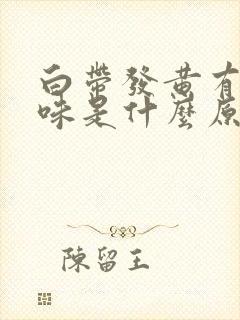 白帶發黃有
味是什麼原
陳留王